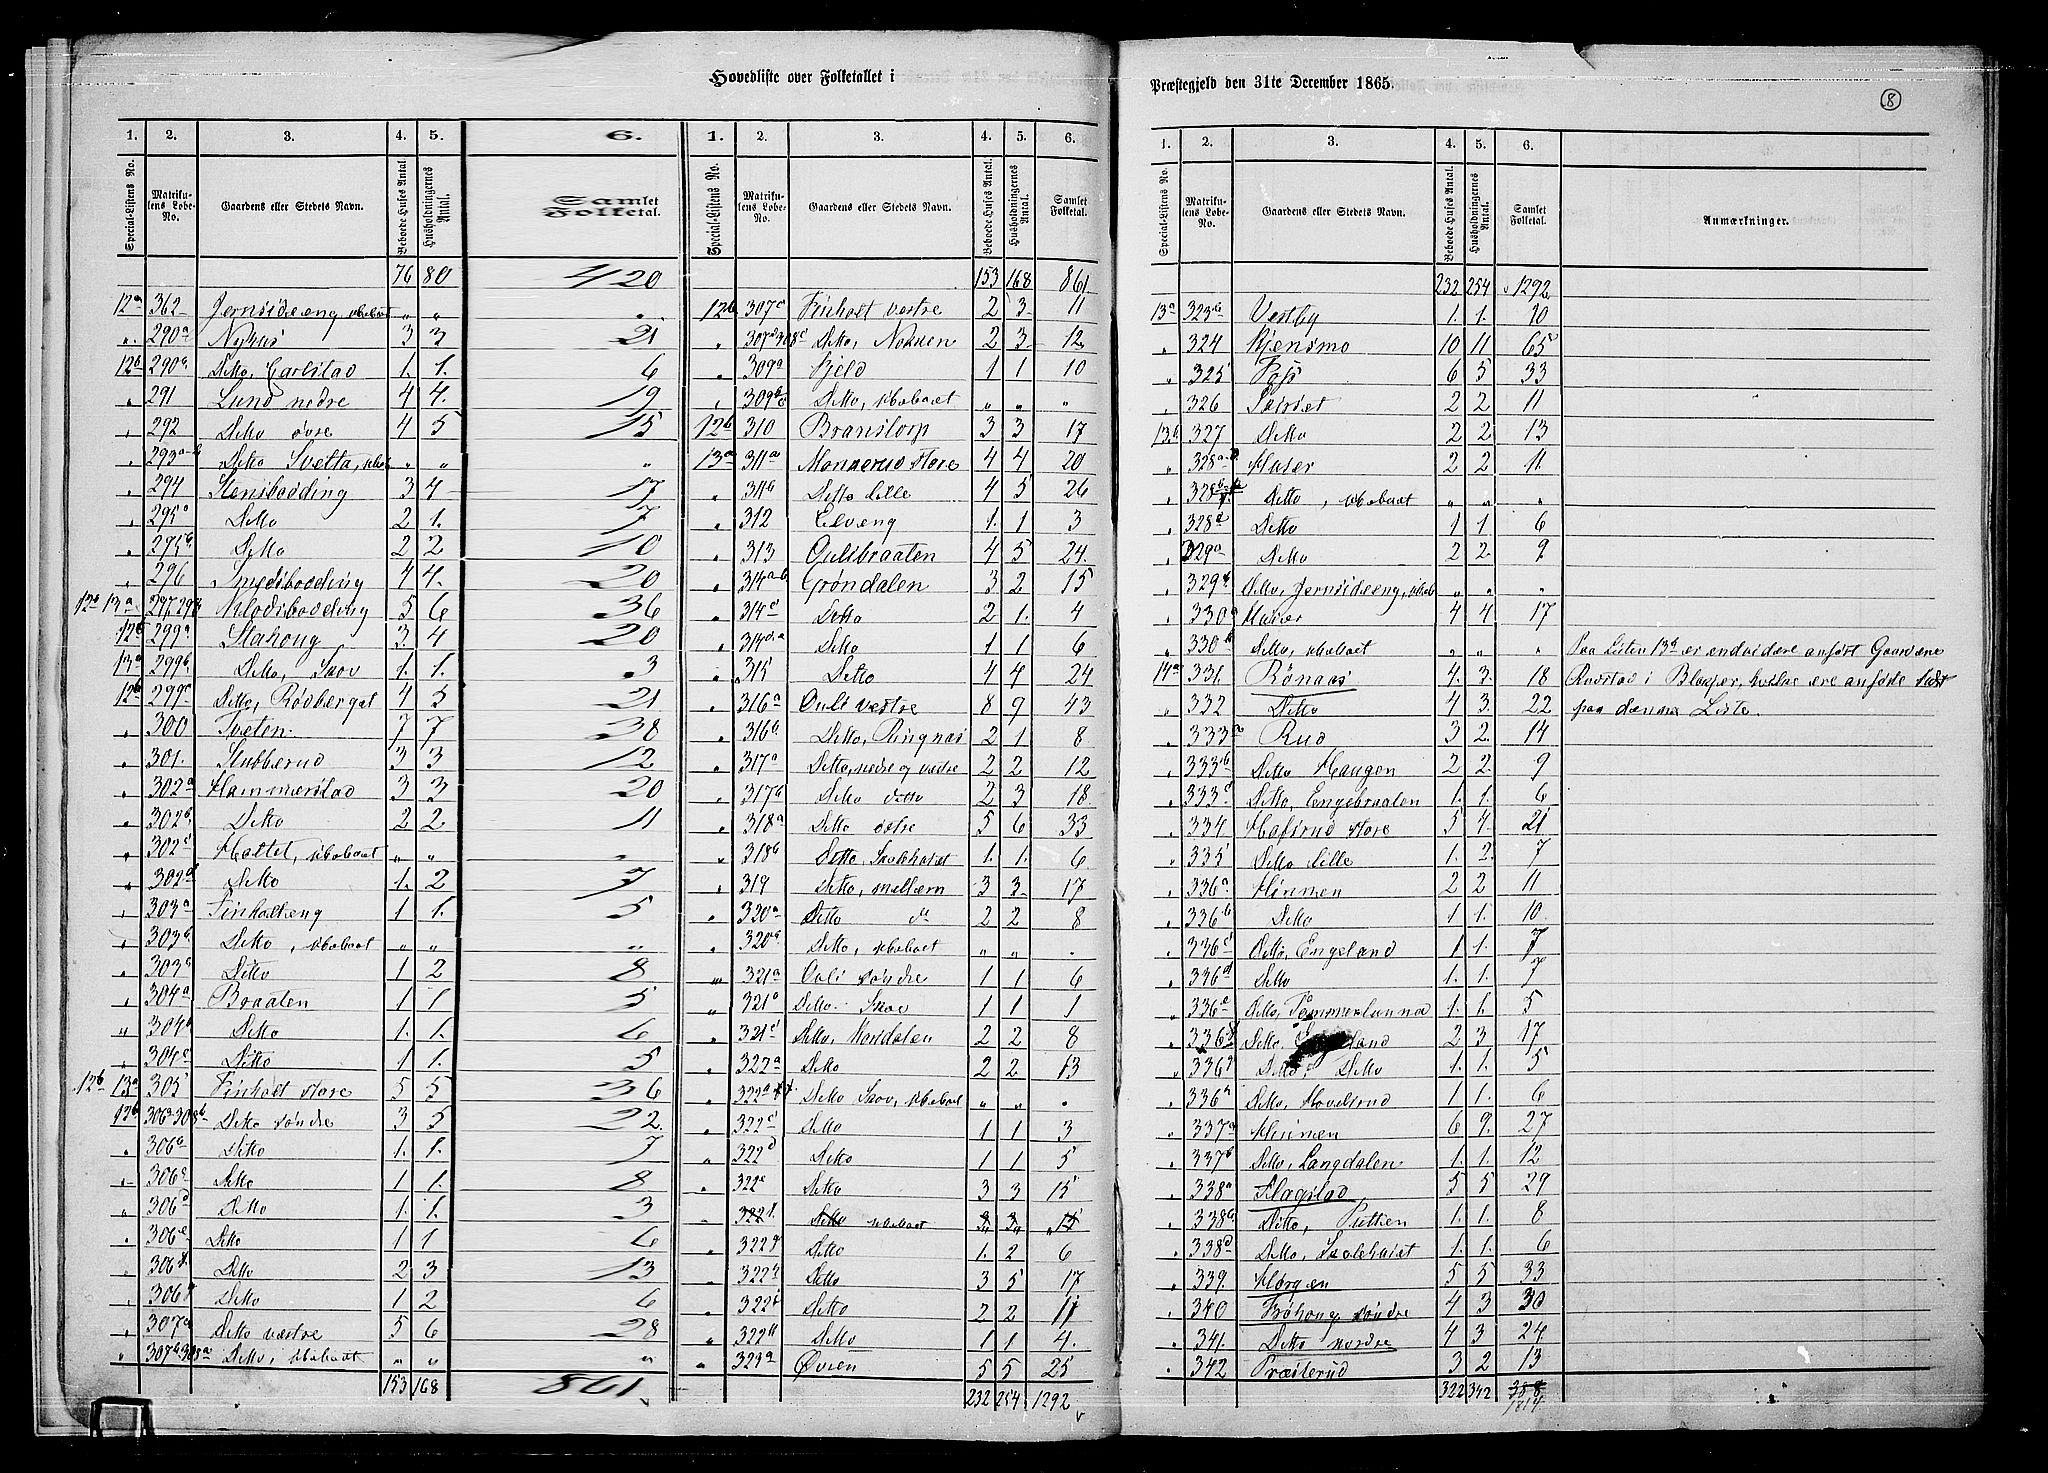 Hovedliste over Folketallet i
Præstegjeld den 31te December 1865.
8
1. 2. 3. 4. 5. 6.
Special-Listens No. Matrikulens Løbe-No. Gaardens eller Stedets Navn. Beboede Huses Antal. Husholdningernes Antal. Samlet Folketal.
76 80 420
12a 362 Jernsideeng, ubeboet „ „ „
„ 290a Nyhus 3 3 21
12b 290b Ditto, Carlstad 1. 1. 6
„ 291 Lund nedre 4 4. 19
„ 292 Ditto øvre 4 5 15
„ 293a-b Ditto Svetta, ubeb „ „ „
„ 294 Stensbødding 3 4 17
„ 295a Ditto 2 1. 7
„ 295b Ditto 2 2 10
„ 296 Smedsbødding 4 4. 20
12b 13a 297,298 Melodsbødding 5 6 36
12b 299a Stahoug 3. 4 20
13a 299b Ditto, Skov 1. 1. 3
12b 299c Ditto, Rødberget 4 5 21
„ 300 Tveten 7 7 38
„ 301. Stubberud 3 3 12
„ 302a Hammerstad 3 3 20
„ 302b Ditto 2 2 11
„ 302c Holtet, ubeboet „ „ „
„ 302d Ditto 1. 2 7
„ 303a Finholteng 1 1. 5
„ 303b Ditto, ubeboet „ „ „
„ 303c Ditto 1 2 8
„ 304a Braaten 1 1 5
„ 304b Ditto 1. 1. 6
„ 304c Ditto 1 1. 5
12b 13a 305 Finholt store 5 5 36
12b 306a-308b Ditto søndre 3 5 22
„ 306b Ditto 1. 1. 7
„ 306c Ditto 1 1. 8
„ 306d Ditto 1. 1. 3
„ 306e Ditto 1 1 6
„ 306f. Ditto 2 3 13
„ 306g Ditto 1 2 6
„ 307a Ditto vestre 5 6 28
„ 307b-308a Ditto, ubeboet „ „ „
153 168 861
1. 2. 3. 4. 5. 6.
Special-Listens No. Matrikulens Løbe-No. Gaardens eller Stedets Navn. Beboede Huses Antal. Husholdningernes Antal. Samlet Folketal.
153 168 861
12b 307c Finholt vestre 2 3 11
„ 307d-308c Ditto, 2 3 12
„ 309a Fjeld 1 1 10
„ 309b-c Ditto, ubeboet „ „ „
12b 310 Branstorp 3 3 17
13a 311a Mannerud store 4 4 20
„ 311b Ditto lille 4 5 26
„ 312 Elveng 1. 1 3
„ 313 Gulibraaten 4 5 24.
„ 314a-b Grøndalen 3 2 15
„ 314c Ditto 2 1. 4
„ 314d Ditto 1 1 6
„ 315 Ditto 4 4 24
„ 316a Ouli vestre 8 9 43
„ 316b Ditto, Ringnæs 2 1 8
„ 317a Ditto, nedre og vestre 2 2 12
„ 317b Ditto ditto 2 3 18.
„ 318a Ditto østre 5 6 33
„ 318b Ditto, Skolehuset 1. 1. 6
„ 319 Ditto, mellem 3 3 17
„ 320a Ditto do 2 2 8
„ 320b Ditto, ubeboet „ „ „
„ 321a Ouli søndre 1 1 6
„ 321b Ditto Skov 1 1 1
„ 321c Ditto, Nordalen 2 2 8
„ 322a Ditto 2 2 13
„ 322b Ditto Skov, ubeboet „ „ „
„ 322c Ditto 1 1 3
„ 322d Ditto 1 1 5
„ 322e Ditto 3 3 15
„ 322f Ditto ubeboet „ „ „
„ 322g Ditto 1. 2 6
„ 322h Ditto 3 5 17
„ 322i Ditto 2 2 11
„ 322k Ditto 1 1 4.
„ 323a Øvien 5 5 25
232 254 1292
1. 2. 3. 4. 5. 6.
Special-Listens No. Matrikulens Løbe-No. Gaardens eller Stedets Navn. Beboede Huses Antal. Husholdningernes Antal. Samlet Folketal. Anmærkninger.
232 254 1292
13a 323b Vestby 1. 1. 10
„ 324 Hjensmo 10 11 65
„ 325 Foss 6 5 33
„ 326 Sæteret 2 2 11
13b 327 Ditto 2 2 13
„ 328a-b Huser 2 2 11
„ 328 Ditto, ubeboet „ „ „
„ 328e Ditto 1 1 6
„ 329a Ditto 2 2. 9
„ 329b. Ditto, Jernsideeng, ubeb „ „ „
„ 330a Huser 4 4 17
„ 330b Ditto, ubeboet „ „ „ Paa Listen 13b er endvidere anført Gaardene
14a 331. Rønaas 4. 3. 18 Rudstad i Blakjer, hvilke ere anførte sidst
„ 332 Ditto 4 3. 22 paa denne Liste.
„ 333a Rud 3 2. 14
„ 333b Ditto Haugen 2 2. 9
„ 333c Ditto, Engebraaten 1. 1. 6
„ 334 Hofsrud store 5 4. 21
„ 335 Ditto lille 1. 2. 7
„ 336a. Hinmen 2 2 11
„ 336b Ditto 1 1. 10.
„ 336c Ditto, Engeland 1 1. 7
„ 336d Ditto 1. 1. 7
„ 336e Ditto, Tømmerlunna 1. 1. 5
„ 336f Ditto, Engeland 2 3 17
„ 336g Ditto, Ditto 1. 1. 5
„ 336h Ditto, Hovelsrud 1 1. 6
„ 337a Hinmen 6 9. 27
„ 337b Ditto, Langdalen 1. 1. 12
„ 338a Flagstad 5 5 29
„ 338b. Ditto, Putten 1. 1. 8
„ 338d Ditto, Skolehuset 1. 1. 6
„ 339. Horgen 5 5 33
„ 340 Bøhoug søndre 4 3 30
„ 341. Ditto nordre 4 3 24.
„ 342 Præsterud 3 2 13
322 342 1814